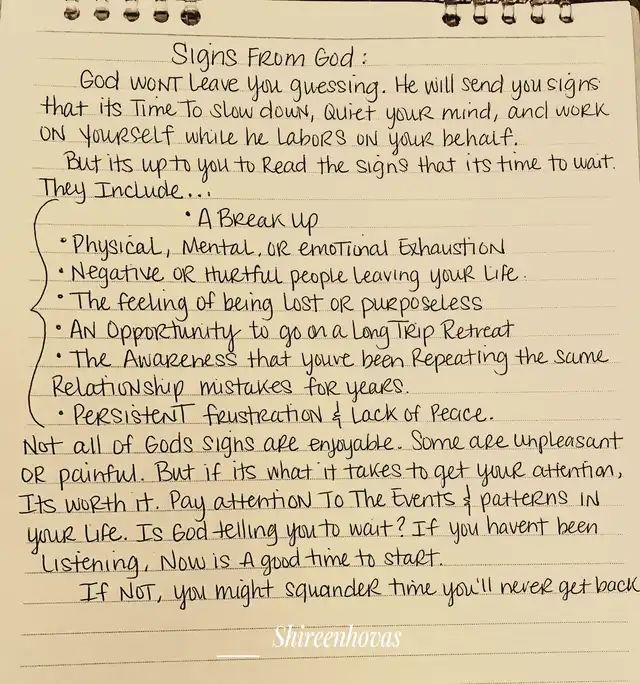 Signs From God:
God wont leave you guessing. He will send you signs
that its Time To slow down, Quiet your mind, and work
on yourself while he labors on your behalf.
But its up to you to Read the signs that its time to wait.
They Include...
• A Break up
• Physical, Mental, or emotional Exhaustion
• Negative or Hurtful people leaving your life.
• The feeling of being lost or purposeless
• An Opportunity to go on a Long Trip Retreat
• The Awareness that youve been Repeating the same
Relationship mistakes for years.
• Persistent frustration & Lack of Peace.
Not all of Gods signs are enjoyable. Some are unpleasant
or painful. But if its what it takes to get your attention,
Its worth it. Pay attention To The Events & patterns in
your life. Is God telling you to wait? If you havent been
Listening, Now is A good time to start.
If Not, you might squander time you'll never get back
Shireenhovas